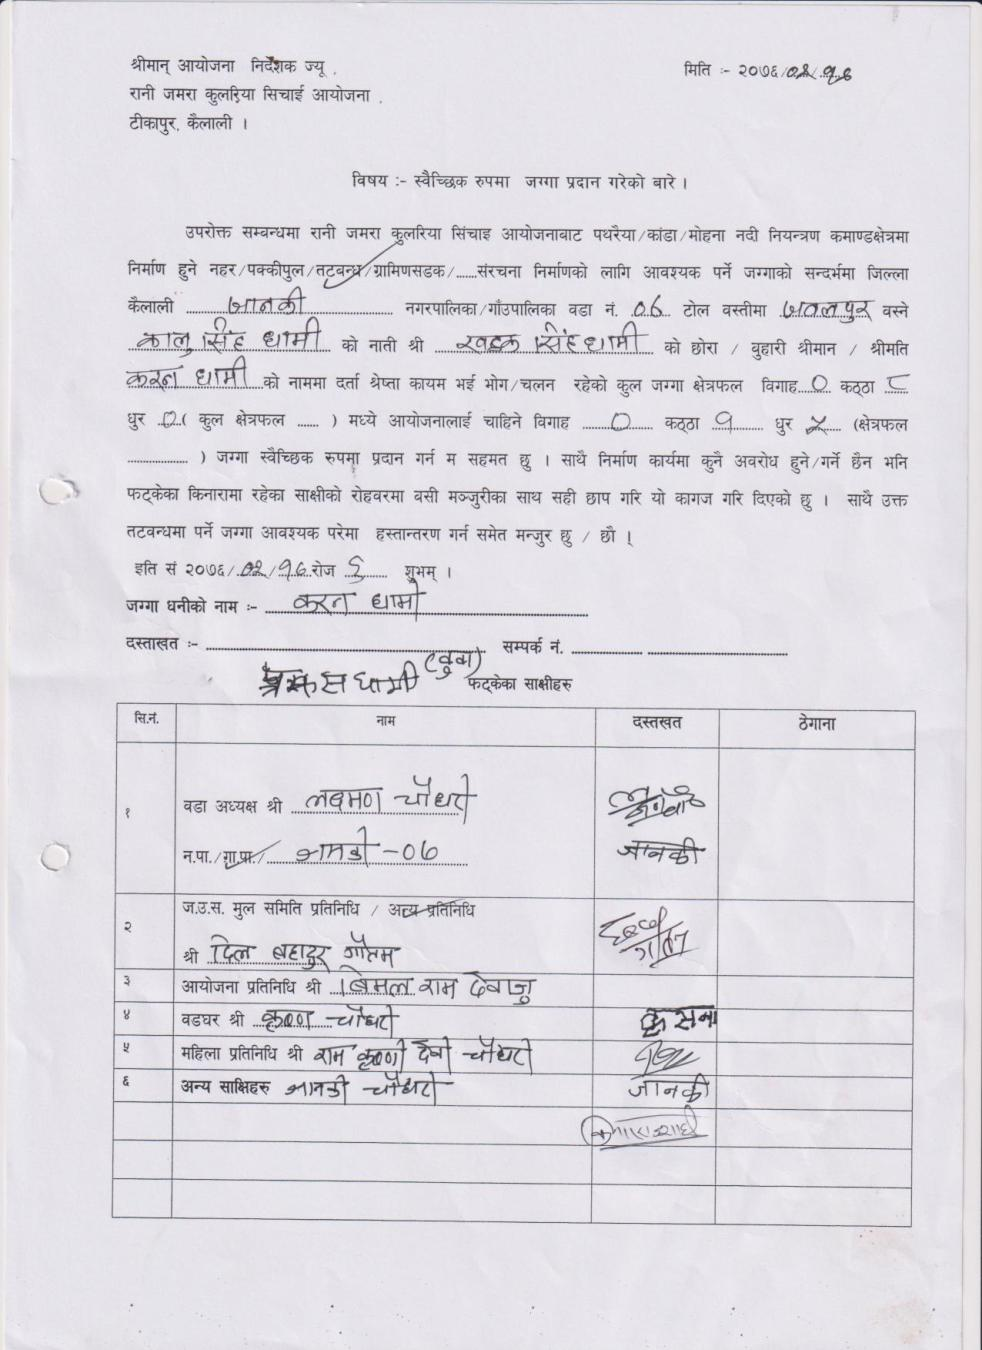 श्रीमान् आयोजना निर्देशक ज्यू ,
मिति :- २०७६/०२/१६
रानी जमरा कुलरिया सिचाई आयोजना ,
टीकापुर, कैलाली ।
विषय :- स्वैच्छिक रुपमा जग्गा प्रदान गरेको बारे ।
उपरोक्त सम्बन्धमा रानी जमरा कुलरिया सिंचाइ आयोजनाबाट पथरैया/कांडा/मोहना नदी नियन्त्रण कमाण्डक्षेत्रमा
निर्माण हुने नहर/पक्कीपुल/तटबन्ध/ग्रामिणसडक/......संरचना निर्माणको लागि आवश्यक पर्ने जग्गाको सन्दर्भमा जिल्ला
कैलाली जानकी नगरपालिका/गाँउपालिका वडा नं. ०६ टोल वस्तीमा जवलपुर वस्ने
कालु सिंह धामी को नाती श्री खडक सिंह धामी को छोरा / वुहारी श्रीमान / श्रीमति
करन धामी को नाममा दर्ता श्रेप्ता कायम भई भोग/चलन रहेको कुल जग्गा क्षेत्रफल विगाह 0 कठ्ठा ८
धुर 0 ( कुल क्षेत्रफल ...... ) मध्ये आयोजनालाई चाहिने विगाह 0 कठ्ठा १ धुर (क्षेत्रफल
.................. ) जग्गा स्वैच्छिक रुपमा प्रदान गर्न म सहमत छु । साथै निर्माण कार्यमा कुनै अवरोध हुने/गर्ने छैन भनि
फट्केका किनारामा रहेका साक्षीको रोहवरमा वसी मञ्जुरीका साथ सही छाप गरि यो कागज गरि दिएको छु । साथै उक्त
तटवन्धमा पर्ने जग्गा आवश्यक परेमा हस्तान्तरण गर्न समेत मन्जुर छु / छौ ।
इति सं २०७६/०२/१६ रोज ६ शुभम् ।
जग्गा धनीको नाम :- करन धामी
दस्ताखत :- सम्पर्क नं.
धामी (वुवा)
फट्केका साक्षीहरु
सि.नं. नाम दस्तखत ठेगाना
१ वडा अध्यक्ष श्री लक्ष्मण चौधरी
न.पा./गा.पा./ जानकी -०६ जानकी
२ ज.उ.स. मुल समिति प्रतिनिधि / अन्य प्रतिनिधि
श्री दिल बहादुर गौतम
३ आयोजना प्रतिनिधि श्री बिमल राम देवाजु
४ वडघर श्री कृष्ण चौधरी कृ सना
५ महिला प्रतिनिधि श्री राम कृष्णी देवी चौधरी
६ अन्य साक्षिहरु जानकी चौधरी जानकी